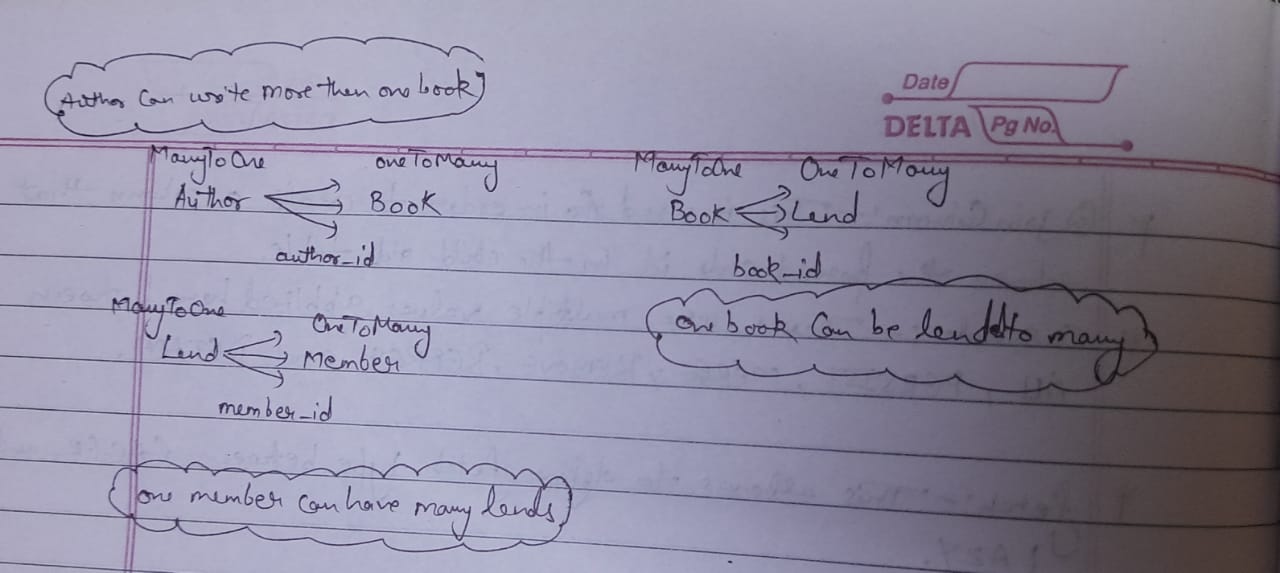 Author Can write more then one book
Date
DELTA Pg No.
ManyToOne oneToMany
Author Book
author_id
ManyToOne OneToMany
Book Lend
book_id
one book Can be lendd to many
ManyToOne OneToMany
Lend Member
member_id
one member can have many lends